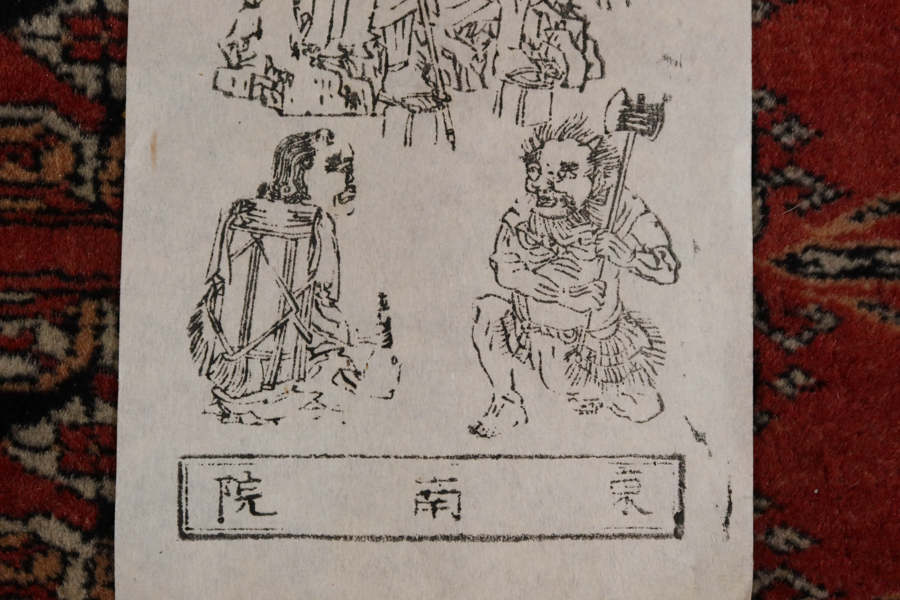 東南院